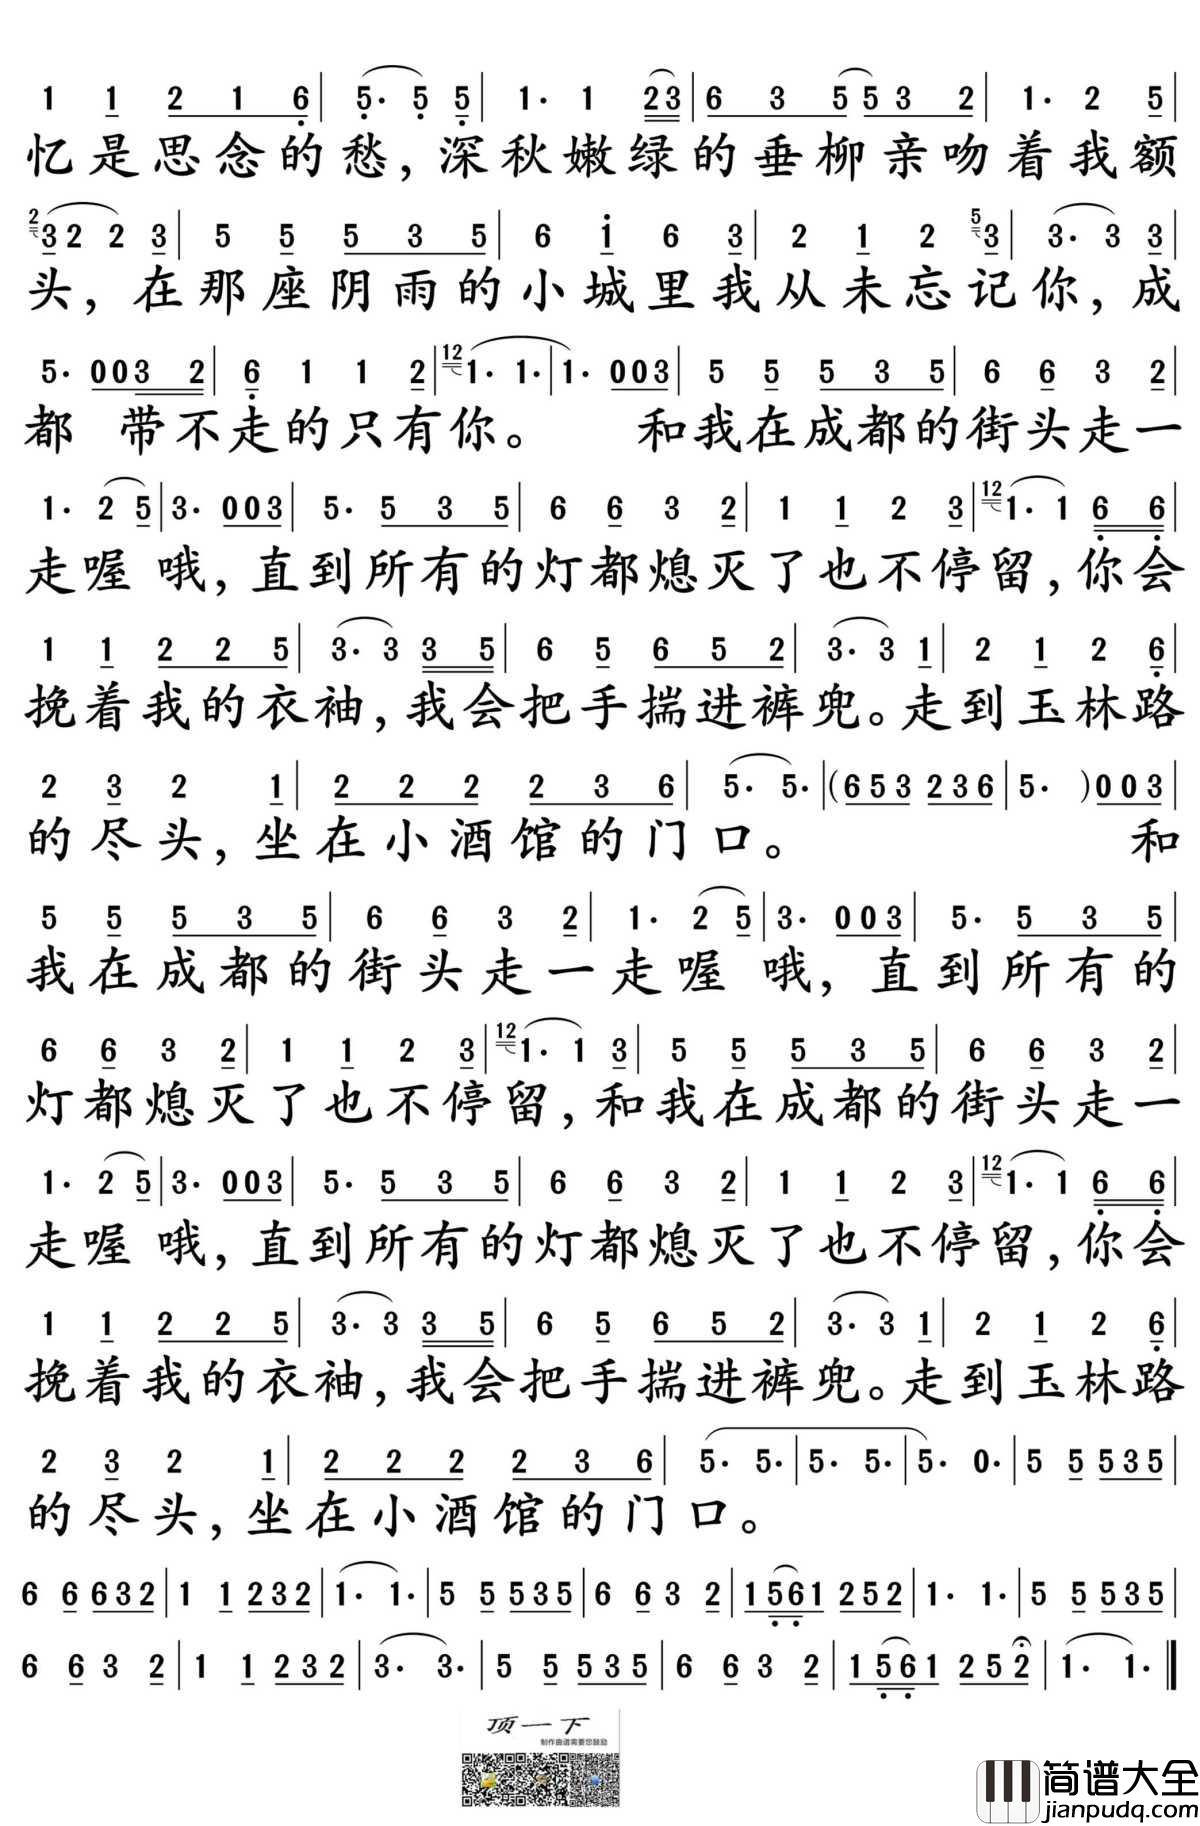 1 1 2 1 6 | 5· 5 5 | 1· 1 2 3 | 6 3 5 5 3 2 | 1· 2 5 |
忆是思念的愁，深秋嫩绿的垂柳亲吻着我额
2 3 2 2 3 | 5 5 5 3 5 | 6 1 6 3 | 2 1 2 5 3 | 3· 3 3 |
头，在那座阴雨的小城里我从未忘记你，成
5· 0 0 3 2 | 6 1 1 2 | 12 1· 1· | 1· 0 0 3 | 5 5 5 3 5 | 6 6 3 2 |
都 带不走的只有你。 和我在成都的街头走一
1· 2 5 | 3· 0 0 3 | 5· 5 3 5 | 6 6 3 2 | 1 1 2 3 | 12 1· 1 6 6 |
走喔 哦，直到所有的灯都熄灭了也不停留，你会
1 1 2 2 5 | 3· 3 3 5 | 6 5 6 5 2 | 3· 3 1 | 2 1 2 6 |
挽着我的衣袖，我会把手揣进裤兜。走到玉林路
2 3 2 1 | 2 2 2 2 3 6 | 5· 5· | (6 5 3 2 3 6 | 5· ) 0 0 3 |
的尽头，坐在小酒馆的门口。 和
5 5 5 3 5 | 6 6 3 2 | 1· 2 5 | 3· 0 0 3 | 5· 5 3 5 |
我在成都的街头走一走喔 哦，直到所有的
6 6 3 2 | 1 1 2 3 | 12 1· 1 3 | 5 5 5 3 5 | 6 6 3 2 |
灯都熄灭了也不停留，和我在成都的街头走一
1· 2 5 | 3· 0 0 3 | 5· 5 3 5 | 6 6 3 2 | 1 1 2 3 | 12 1· 1 6 6 |
走喔 哦，直到所有的灯都熄灭了也不停留，你会
1 1 2 2 5 | 3· 3 3 5 | 6 5 6 5 2 | 3· 3 1 | 2 1 2 6 |
挽着我的衣袖，我会把手揣进裤兜。走到玉林路
2 3 2 1 | 2 2 2 2 3 6 | 5· 5· | 5· 5· | 5· 0· | 5 5 5 3 5 |
的尽头，坐在小酒馆的门口。
6 6 6 3 2 | 1 1 2 3 2 | 1· 1· | 5 5 5 3 5 | 6 6 3 2 | 1 5 6 1 2 5 2 | 1· 1· | 5 5 5 3 5 |
6 6 3 2 | 1 1 2 3 2 | 3· 3· | 5 5 5 3 5 | 6 6 3 2 | 1 5 6 1 2 5 2 | 1· 1· ‖
顶一下
制作曲谱需要您鼓励
简谱大全
jianpudq.com